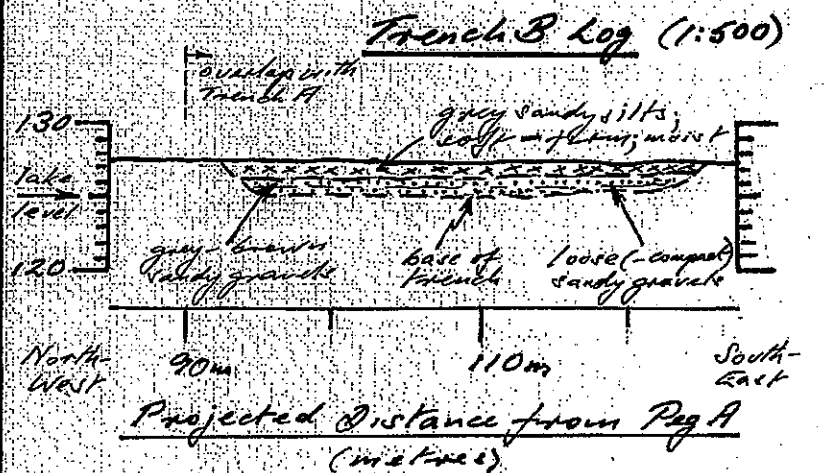 Trench B Log (1:500)
overlap with
Trench A
grey sandy silts;
soft - firm; moist
130
Lake
level
120
grey-brown
sandy gravels
base of
trench
loose (-compact)
sandy gravels
North-
West
90m
110m
South-
East
Projected Distance from Peg A
(metres)